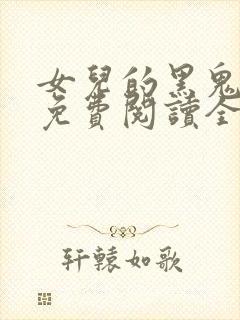 女兒的黑鬼
免費閱讀全
轩辕如歌